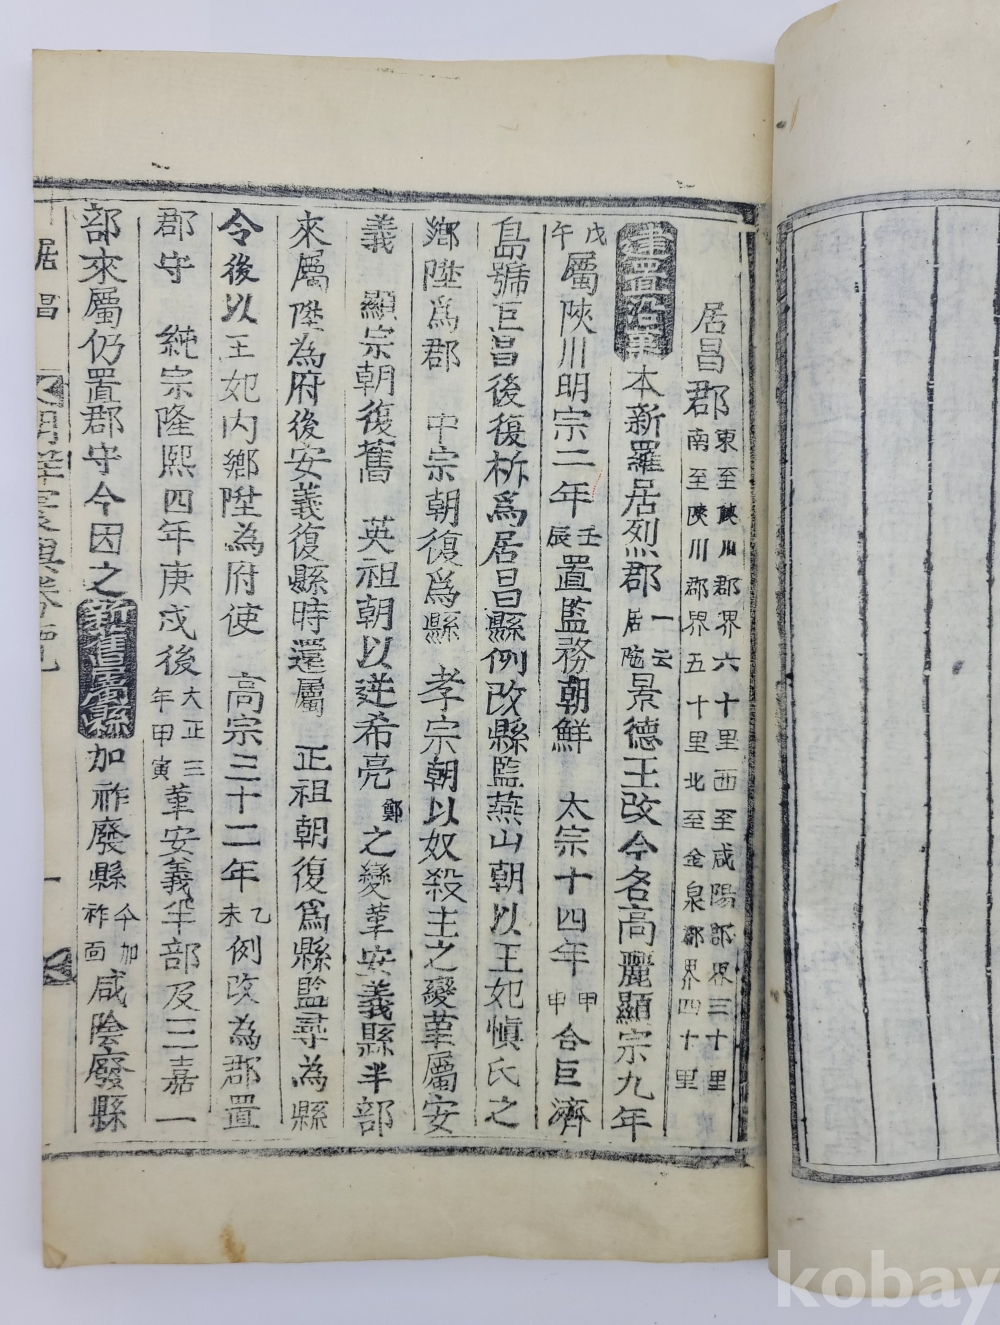 居昌郡 東至陜川郡界六十里西至咸陽郡界三十里 南至陜川郡界五十里北至金泉郡界四十里
建置沿革 本新羅居烈郡 一云居陁 景德王改今名高麗顯宗九年
戊午 屬陜川明宗二年 壬辰 置監務朝鮮 太宗十四年 甲申 合巨濟
島號巨昌後復析爲居昌縣例改縣監燕山朝以王妃愼氏之
鄉陞爲郡 中宗朝復爲縣 孝宗朝以奴殺主之變革屬安
義 顯宗朝復舊 英祖朝以逆希亮 鄭 之變革安義縣半部
來屬陞為府後安義復縣時還屬 正祖朝復爲縣監尋為縣
令後以王妃内鄉陞為府使 高宗三十二年 乙未 例改為郡置
郡守 純宗隆熙四年庚戌後 大正三年甲寅 革安義半部及三嘉一
部來屬仍置郡守今因之 新舊屬縣 加祚廢縣 今加祚面 咸陰廢縣
居昌
一
kobay